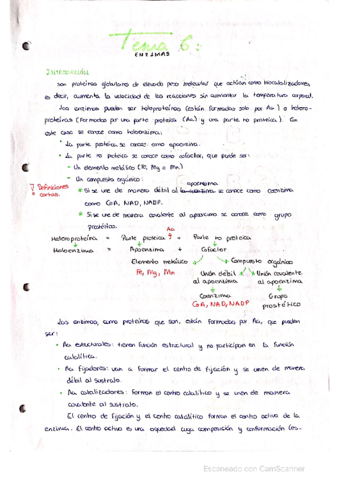 Tema 6:
ENZIMAS
INTRODUCCIÓN
Son proteínas globulares de elevado peso molecular que actúan como biocatalizadores,
es decir, aumenta la velocidad de las reacciones sin aumentar la temperatura corporal.
Las enzimas pueden ser holoproteínas (están formadas solo por Aa) o hetero-
proteínas (formadas por una parte proteica (Aa) y una parte no proteica). En
este caso se conoce como holoenzima:
• La parte proteica se conoce como apoenzima.
• La parte no proteica se conoce como cofactor, que puede ser:
- Un elemento metálico (Fe, Mg o Mn)
- Un compuesto orgánico:
apoenzima
Definiciones
cortas.
* Si se une de manera débil al se conoce como coenzima
como CoA, NAD, NADP.
* Si se une de manera covalente al apoenzima se conoce como grupo
prostético.
Aa
Heteroproteína = Parte proteica + Parte no proteica
Holoenzima = Apoenzima + Cofactor
Elemento metálico Compuesto orgánico
Fe, Mg, Mn Unión débil Unión covalente
al apoenzima al apoenzima
Coenzima Grupo
CoA, NAD, NADP prostético
Las enzimas, como proteínas que son, están formadas por Aa, que pueden
ser:
• Aa estructurales: tienen función estructural y no participan en la función
catalítica.
• Aa fijadores: van a formar el centro de fijación y se unen de manera
débil al sustrato.
• Aa catalizadores: forman el centro catalítico y se unen de manera
covalente al sustrato.
El centro de fijación y el centro catalítico forman el centro activo de la
enzima. El centro activo es una oquedad cuya composición y conformación (es-
Escaneado con CamScanner